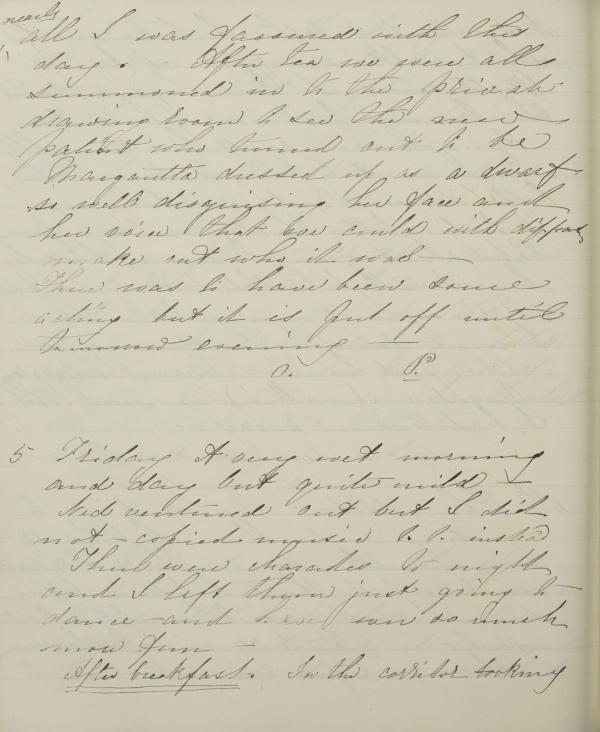 nearly
all I was favoured with this
day. After tea we were all
summoned in to the private
drawing room to see the new
patient who turned out to be
Margaretta dressed up as a dwarf
so well disguising her face and
her voice that we could with difficulty
make out who it was —
There was to have been some
acting but it is put off until
tomorrow evening —
O. P.
5 Friday A very wet morning
and day but quite mild —
Ned ventured out but I did
not — copied music instead
There were charades to night
and I left them just going to
dance — and so much
more fun —
After breakfast. In the corridor looking